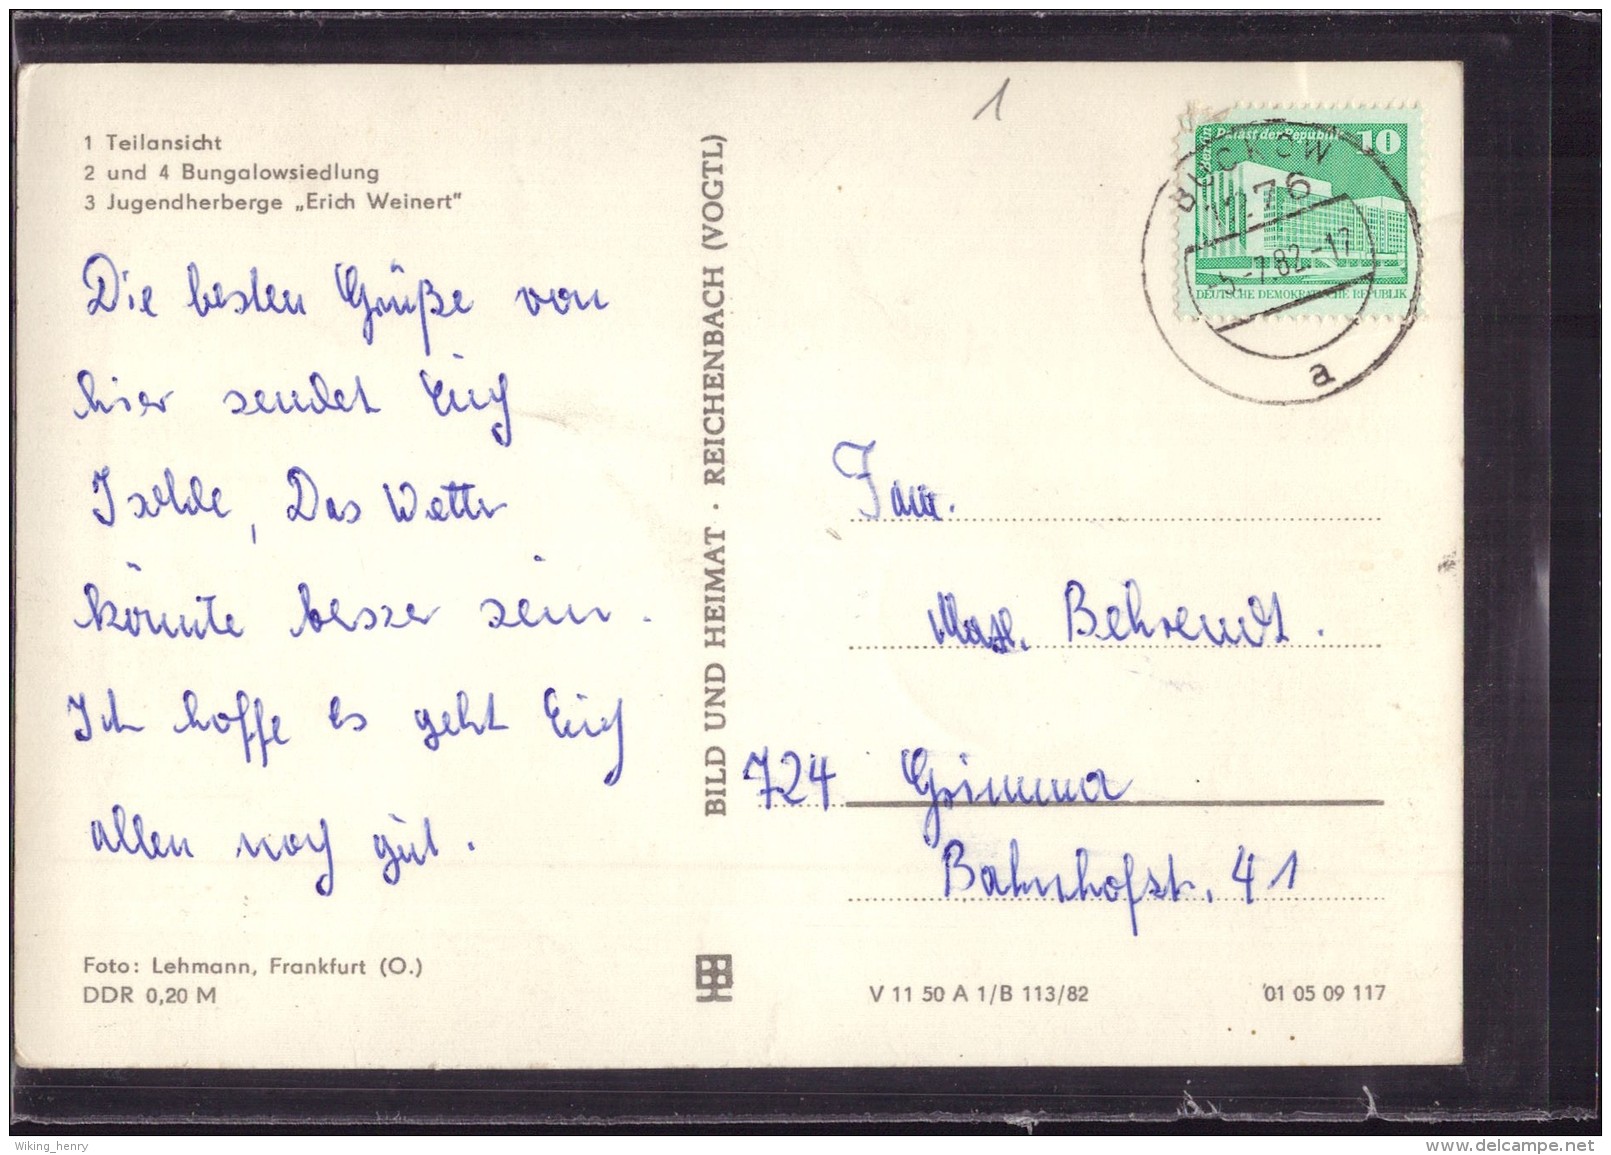 1 Teilansicht
2 und 4 Bungalowsiedlung
3 Jugendherberge „Erich Weinert"
Die besten Grüße von
hier sendet Euch
Isolde, Das Wetter
könnte besser sein.
Ich hoffe es geht Euch
allen noch gut.
Foto: Lehmann, Frankfurt (O.)
DDR 0,20 M
BILD UND HEIMAT · REICHENBACH (VOGTL)
1
Berlin
Palast der Republik
10
DEUTSCHE DEMOKRATISCHE REPUBLIK
BUCKOW
1276
-5.-7.82.-17
a
Fam.
Behrendt.
724 Grimma
Bahnhofstr. 41
V 11 50 A 1/B 113/82
01 05 09 117
Wiking_henry
www.delcampe.net